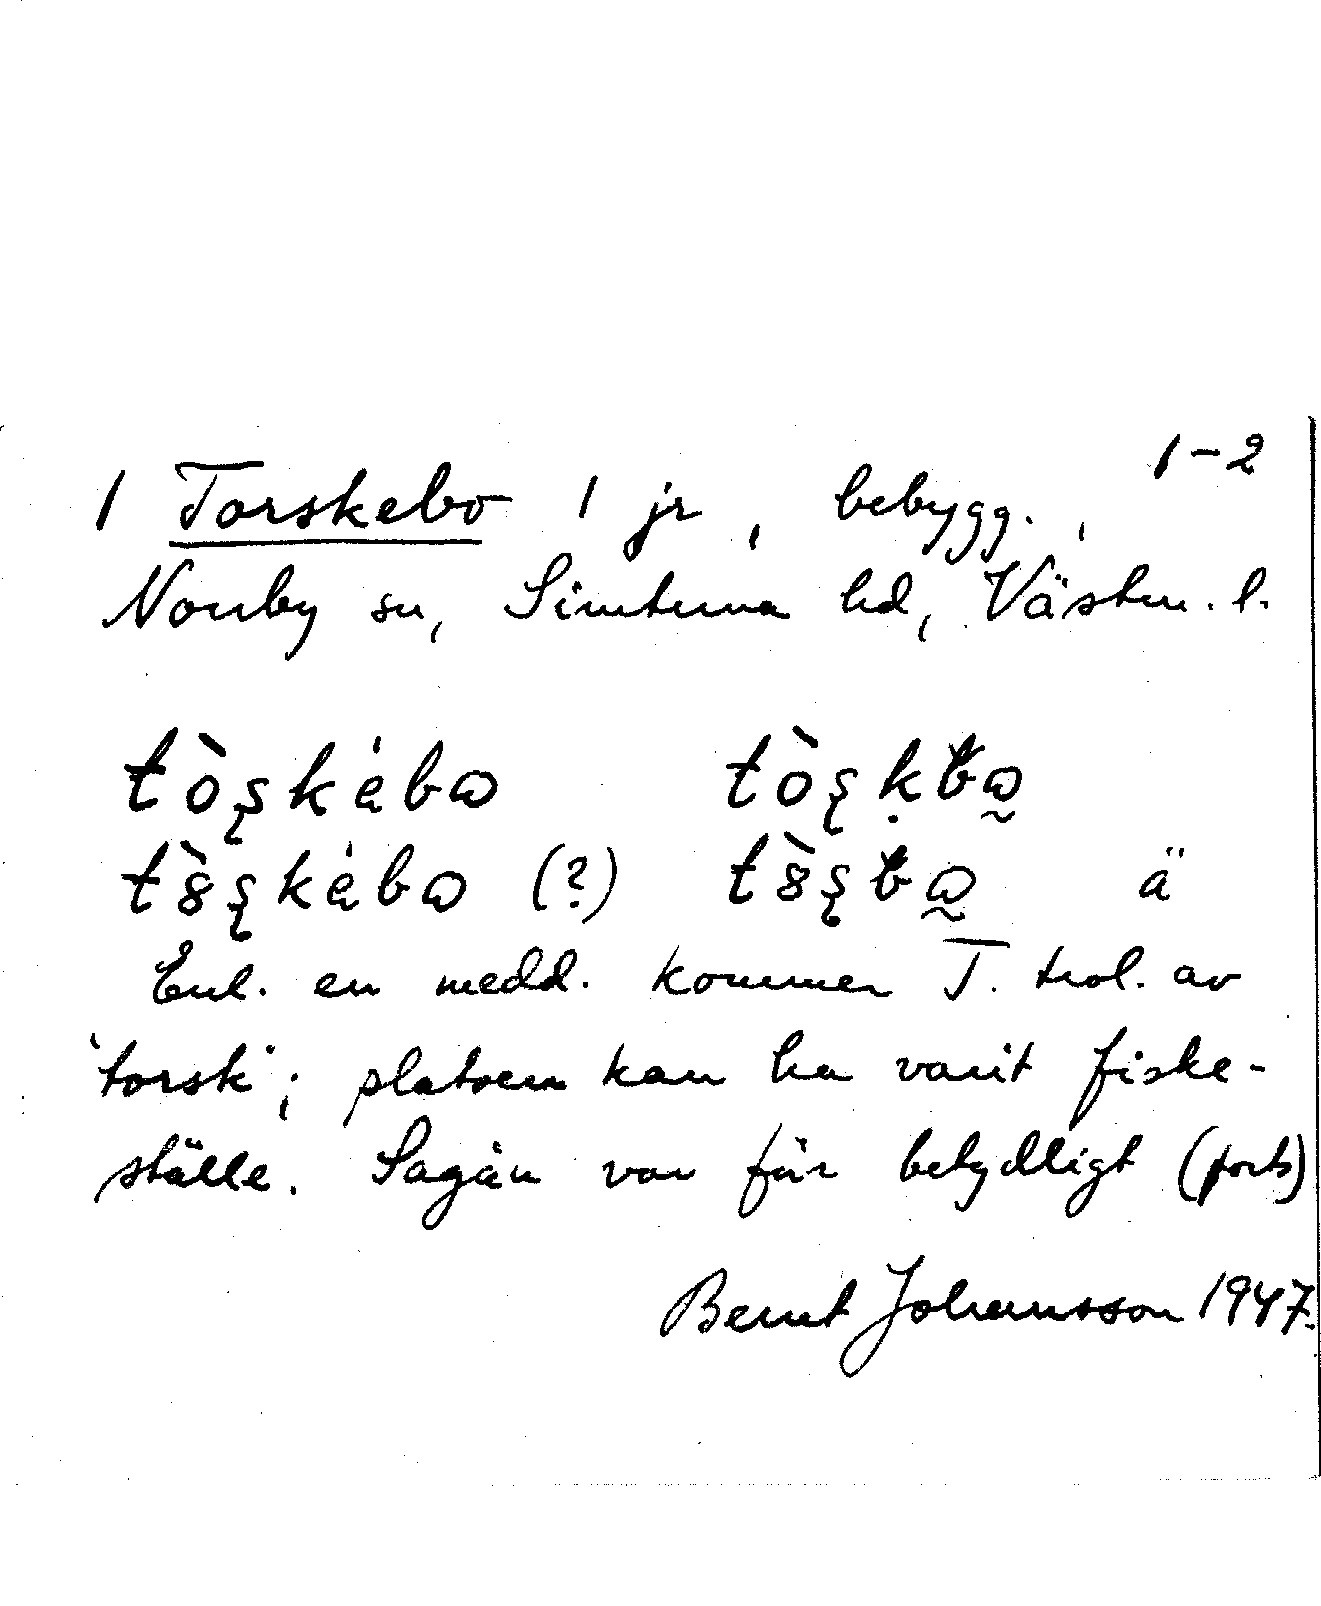 1-2
1 Torskebo 1 jr, bebygg.,
Norrby sn, Simtuna hd, Västm. l.
(?) ä
Enl. en medd. kommer T. trol. av
'torsk'; platsen kan ha varit fiske-
ställe. Sagån var förr betydligt (forts)
Bernt Johansson 1947.